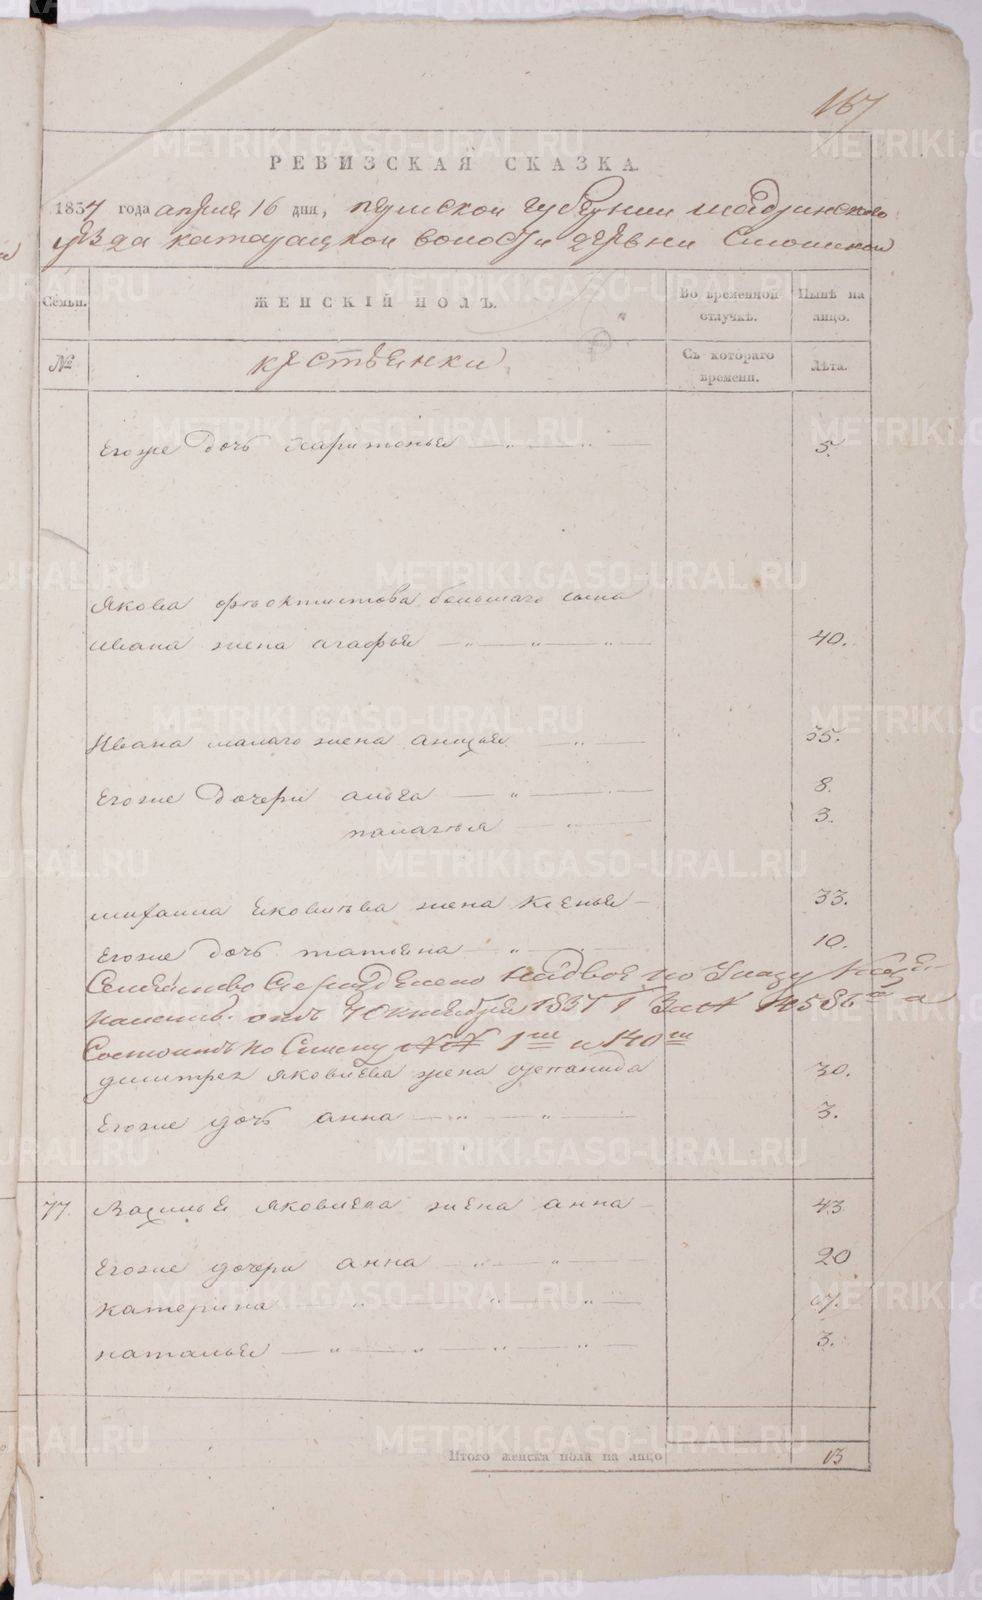 167
РЕВИЗСКАЯ СКАЗКА.
1834 года апреля 16 дня, пермской губернии шадринского
уѣзда катарацкой волости деревни
Семьи. ЖЕНСКІЙ ПОЛЪ. Во временной отлучкѣ. Нынѣ на лицо.
№ крестьянки Съ котораго времени. Лѣта.
Егоже дочь харитонья 5.
Якова феоктистова большаго сына
ивана жена агафья 40.
Ивана малаго жена 35.
Егоже дочери 8.
палагья 3.
михаила яковлева жена ксенья 33.
Егоже дочь татьяна 10.
Семейство Сие раздѣлено надвое по Указу
палаты. отъ октября г За №
Состоитъ по Списку №№ 1м и 140м
дмитрея яковлева жена степанида 30.
Егоже дочь анна 3.
77. Василья яковлева жена анна 43
Егоже дочери анна 20
катерина
наталья 3.
Итого женска пола на лицо 13
METRIKI.GASO-URAL.RU